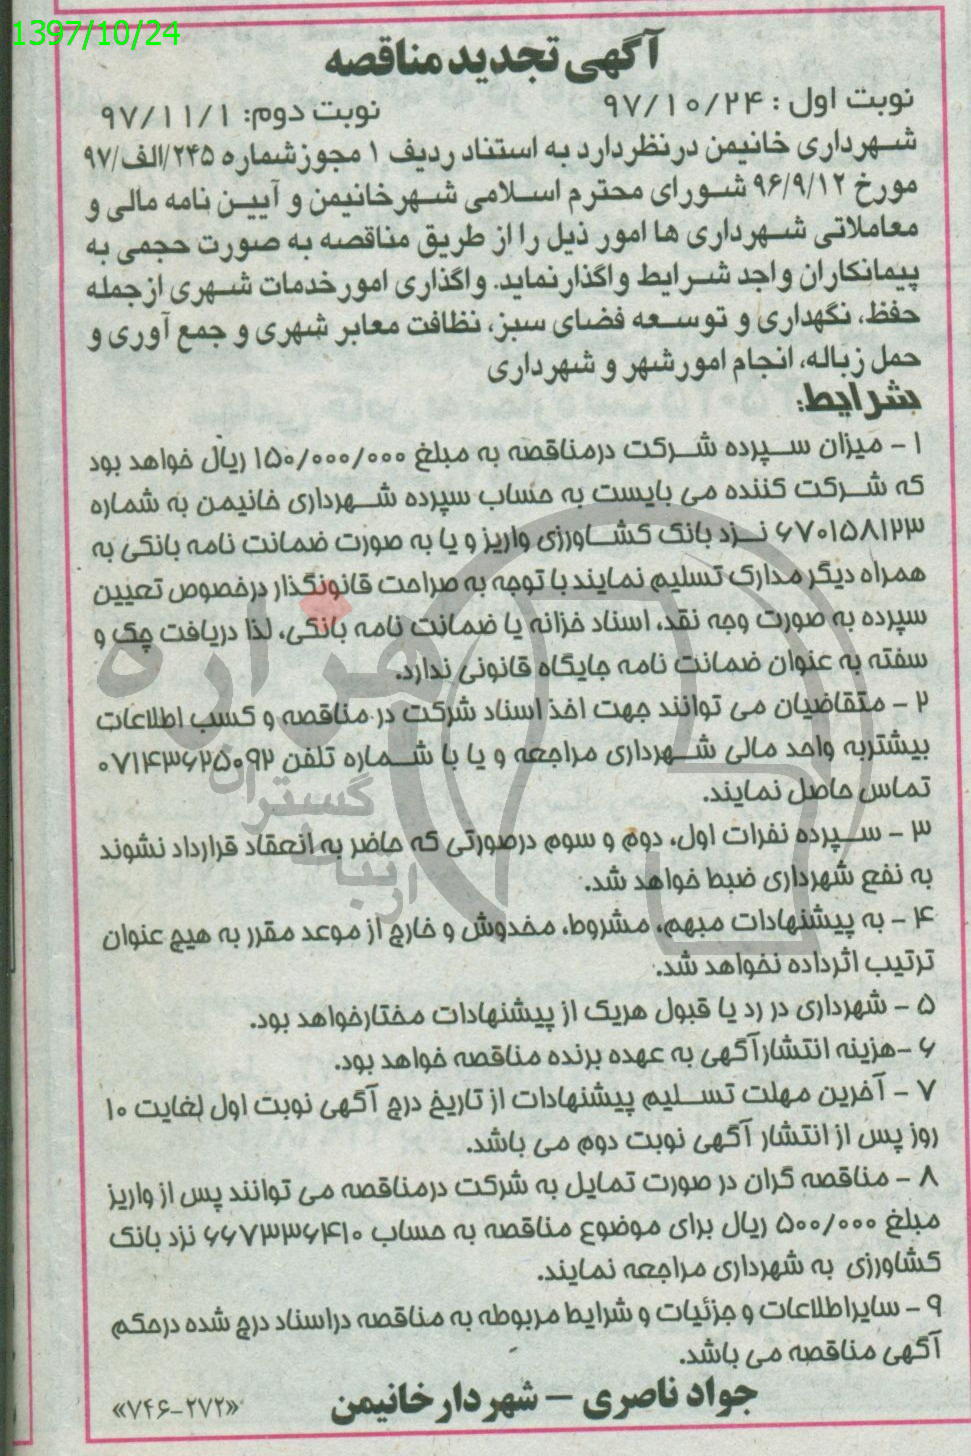 1397/10/24
آگهی تجدید مناقصه
نوبت اول : ۹۷/۱۰/۲۴
نوبت دوم: ۹۷/۱۱/۱
شهرداری خانیمن درنظردارد به استناد ردیف ۱ مجوزشماره ۲۴۵/الف/۹۷
مورخ ۹۶/۹/۱۲ شورای محترم اسلامی شهرخانیمن و آیین نامه مالی و
معاملاتی شهرداری ها امور ذیل را از طریق مناقصه به صورت حجمی به
پیمانکاران واجد شرایط واگذارنماید. واگذاری امورخدمات شهری ازجمله
حفظ، نگهداری و توسعه فضای سبز، نظافت معابر شهری و جمع آوری و
حمل زباله، انجام امورشهر و شهرداری
شرایط:
۱ - میزان سپرده شرکت درمناقصه به مبلغ ۱۵۰/۰۰۰/۰۰۰ ریال خواهد بود
که شرکت کننده می بایست به حساب سپرده شهرداری خانیمن به شماره
۶۷۰۱۵۸۱۲۳ نزد بانک کشاورزی واریز و یا به صورت ضمانت نامه بانکی به
همراه دیگر مدارک تسلیم نمایند با توجه به صراحت قانونگذار درخصوص تعیین
سپرده به صورت وجه نقد، اسناد خزانه یا ضمانت نامه بانکی، لذا دریافت چک و
سفته به عنوان ضمانت نامه جایگاه قانونی ندارد.
۲ - متقاضیان می توانند جهت اخذ اسناد شرکت در مناقصه و کسب اطلاعات
بیشتربه واحد مالی شهرداری مراجعه و یا با شماره تلفن ۰۷۱۴۳۶۲۵۰۹۲
تماس حاصل نمایند.
۳ - سپرده نفرات اول، دوم و سوم درصورتی که حاضر به انعقاد قرارداد نشوند
به نفع شهرداری ضبط خواهد شد.
۴ - به پیشنهادات مبهم، مشروط، مخدوش و خارج از موعد مقرر به هیچ عنوان
ترتیب اثرداده نخواهد شد.
۵ - شهرداری در رد یا قبول هریک از پیشنهادات مختارخواهد بود.
۶ -هزینه انتشارآگهی به عهده برنده مناقصه خواهد بود.
۷ - آخرین مهلت تسلیم پیشنهادات از تاریخ درج آگهی نوبت اول لغایت ۱۰
روز پس از انتشار آگهی نوبت دوم می باشد.
۸ - مناقصه گران در صورت تمایل به شرکت درمناقصه می توانند پس از واریز
مبلغ ۵۰۰/۰۰۰ ریال برای موضوع مناقصه به حساب ۶۶۷۳۳۶۴۱۰ نزد بانک
کشاورزی به شهرداری مراجعه نمایند.
۹ - سایراطلاعات و جزئیات و شرایط مربوطه به مناقصه دراسناد درج شده درحکم
آگهی مناقصه می باشد.
جواد ناصری – شهردار خانیمن
«۷۴۶-۲۷۲»
هزاره
گستران
ارتباط